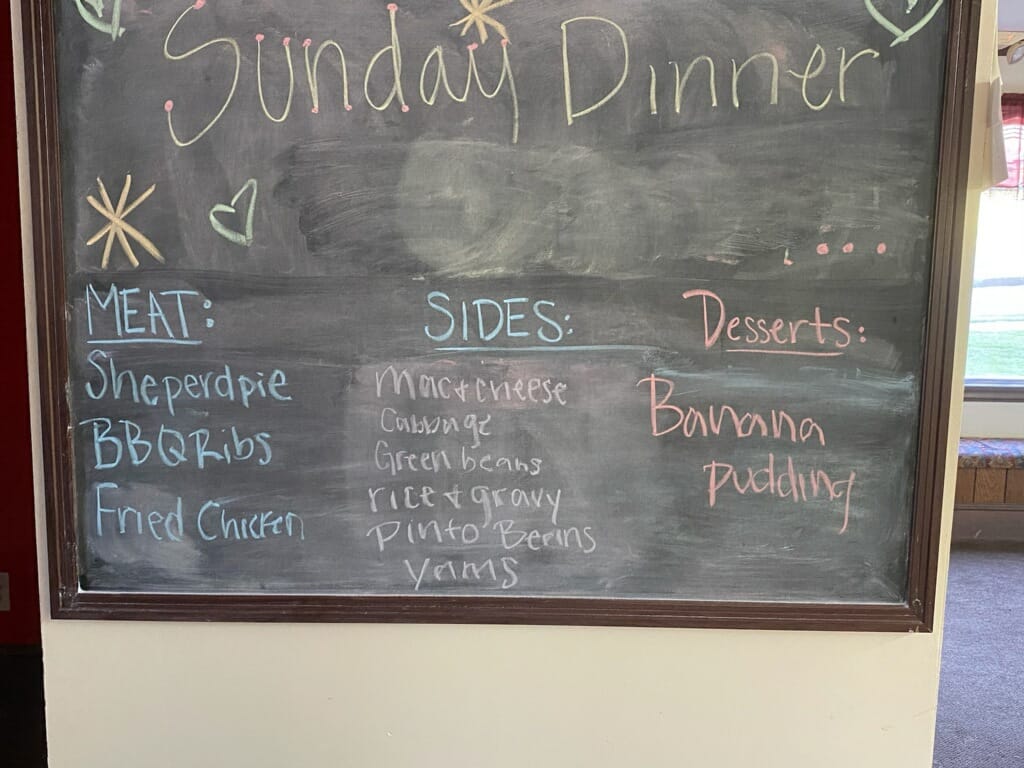 Sunday Dinner
MEAT:
Sheperdpie
BBQ Ribs
Fried Chicken
SIDES:
Mac + cheese
Cabbage
Green beans
rice + gravy
Pinto Beans
yams
Desserts:
Banana
pudding